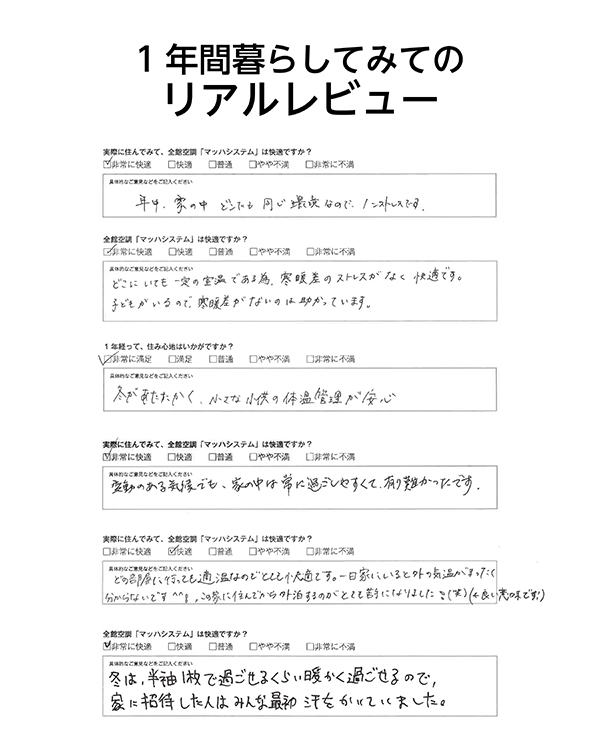 1年間暮らしてみての
リアルレビュー
実際に住んでみて、全館空調「マッハシステム」は快適ですか？
☑非常に快適 □快適 □普通 □やや不満 □非常に不満
具体的なご意見などをご記入ください
年中、家の中 どこでも 同じ 環境 なので、ノンストレスです。
全館空調「マッハシステム」は快適ですか？
☑非常に快適 □快適 □普通 □やや不満 □非常に不満
具体的なご意見などをご記入ください
どこにいても一定の室温である為、寒暖差のストレスがなく快適です。
子どもがいるので、寒暖差がないのは助かっています。
1年経って、住み心地はいかがですか？
☑非常に満足 □満足 □普通 □やや不満 □非常に不満
具体的なご意見などをご記入ください
冬があたたかく、小さな子供の体温管理が安心
実際に住んでみて、全館空調「マッハシステム」は快適ですか？
☑非常に快適 □快適 □普通 □やや不満 □非常に不満
具体的なご意見などをご記入ください
変動のある気候でも、家の中は常に過ごしやすくて、有り難かったです。
実際に住んでみて、全館空調「マッハシステム」は快適ですか？
□非常に快適 ☑快適 □普通 □やや不満 □非常に不満
具体的なご意見などをご記入ください
どの部屋に行っても適温なのでとても快適です。一日家にいると外の気温がまったく
分からないです^^; この家に住んでから外泊するのがとても苦手になりました(笑)(←良い意味です!)
全館空調「マッハシステム」は快適ですか？
☑非常に快適 □快適 □普通 □やや不満 □非常に不満
具体的なご意見などをご記入ください
冬は、半袖1枚で過ごせるくらい暖かく過ごせるので、
家に招待した人はみんな最初 汗をかいていました。